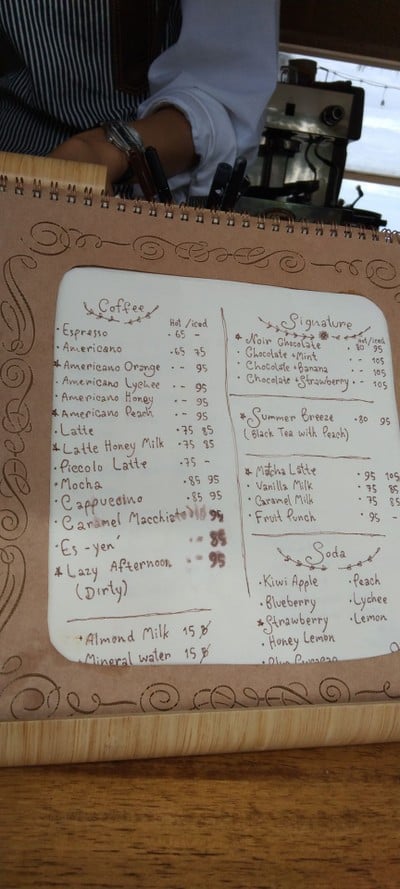 Coffee
Hot /iced
• Espresso • 65 -
• Americano • 65 75
★ Americano Orange - - 95
• Americano Lychee - - 95
• Americano Honey - - 95
★ Americano Peach • - 95
• Latte • 75 85
★ Latte Honey Milk • 75 85
• Piccolo Latte • 75 -
• Mocha • 85 95
• Cappuccino • 85 95
• Caramel Macchiato 95
• Es-yen' • - 85
★ Lazy Afternoon • - 95
(Dirty)
• Almond Milk 15 ฿
• Mineral water 15 ฿
Signature
Hot/iced
★ Noir Chocolate • 80 95
• Chocolate + Mint - - 105
• Chocolate + Banana - - 105
• Chocolate + Strawberry - - 105
★ Summer Breeze • 80 95
(Black Tea with Peach)
★ Matcha Latte • 95 105
• Vanilla Milk • 75 85
• Caramel Milk • 75 85
• Fruit Punch • 95 -
Soda
• Kiwi Apple • Peach
• Blueberry • Lychee
★ Strawberry • Lemon
• Honey Lemon